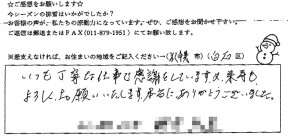 ☆ご感想をお願いします☆
今シーズンの排雪はいかがでしたか?
お客様の声が、私たちの原動力になっています。ぜひ、ご感想をお聞かせ下さい。
ご返信は郵送またはFAX(011-879-1951)にてお願い致します。
※差支えなければ、お住まいの地域をご記入ください→(札幌 市)(白石 区)
いつも丁寧な仕事に感謝をしています。来年も
よろしくお願いいたします。本当にありがとうございました。